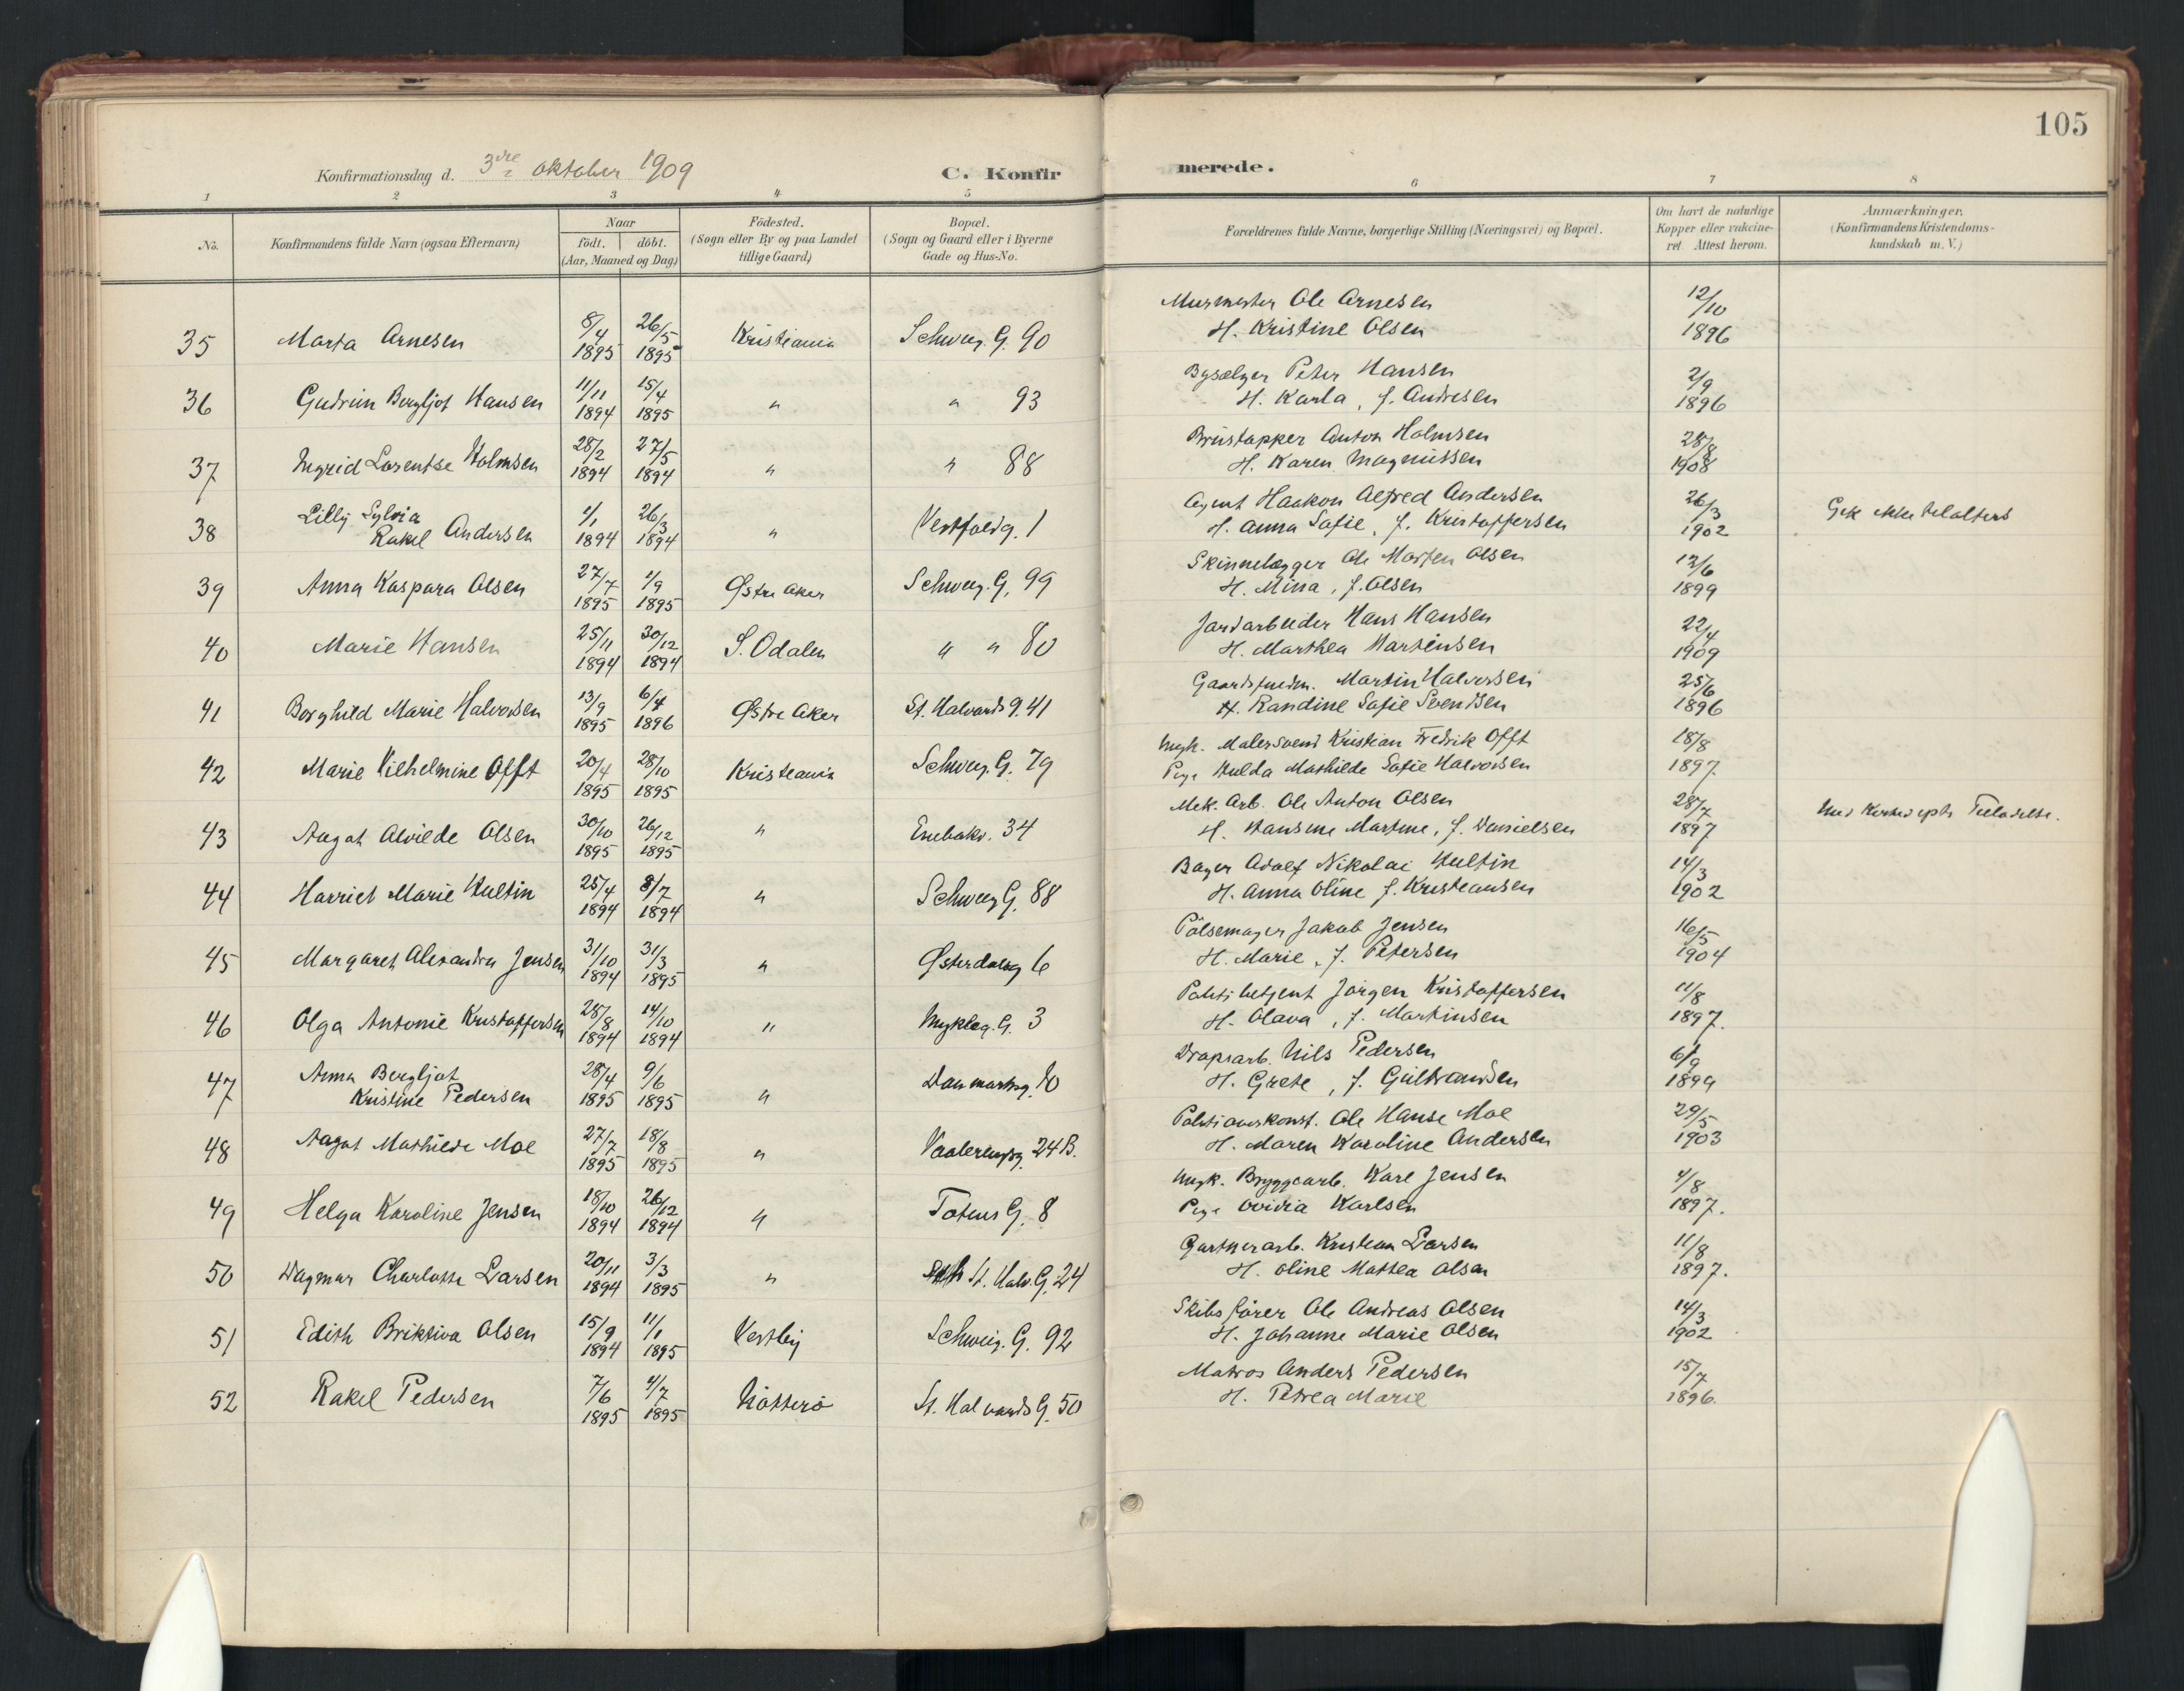 105
Konfirmationsdag d. 3dre oktober 1909
C. Konfirmerede.
1 2 3 4 5 6 7 8
No.
Konfirmandens fulde Navn (ogsaa Efternavn)
Naar
födt. döbt.
(Aar, Maaned og Dag)
Födested.
(Sogn eller By og paa Landet
tillige Gaard)
Bopæl.
(Sogn og Gaard eller i Byerne
Gade og Hus-No.
Forældrenes fulde Navne, borgerlige Stilling (Næringsvei) og Bopæl.
Om havt de naturlige
Kopper eller vakcine-
ret Attest herom.
Anmærkninger.
(Konfirmandens Kristendoms-
kundskab m. V.)
35 Marta Arnesen 8/4 1895 26/5 1895 Kristiania Schweig. G. 90 Murmester Ole Arnesen
H. Kristine Olsen 12/10 1896
36 Gudrun Bergljot Hansen 11/11 1894 15/4 1895 " " 93 Bysælger Peter Hansen
H. Karla, f. Andresen 2/9 1896
37 Ingrid Lorentse Holmsen 28/2 1894 27/5 1894 " " 88 Ølustapper Anton Holmsen
H. Karen Magnussen 28/8 1908
38 Lilly Sylvia
Rakel Andersen 1/1 1894 26/3 1894 " Vestfoldg. 1 Agent Haakon Alfred Andersen
H. Anna Sofie, f. Kristoffersen 26/3 1902 Gik ikke tilalters
39 Anna Kaspara Olsen 27/7 1895 1/9 1895 Østre Aker Schweig. G. 99 Skinnelægger Ole Morten Olsen
H. Mina, f. Olsen 12/6 1899
40 Marie Hansen 25/11 1894 30/12 1894 S. Odalen " " 80 Jordarbeider Hans Hansen
H. Marthea Martinsen 22/4 1909
41 Borghild Marie Halvorsen 13/9 1895 6/4 1896 Østre Aker St. Halvards g. 41 Martin Halvorsen
H. Randine Sofie Svendsen 25/6 1896
42 Marie Vilhelmine Offt 20/4 1895 28/10 1895 Kristiania Schweig. G. 79 Ungk. Malersvend Kristian Fredrik Offt
Pige Hulda Mathilde Sofie Halvorsen 18/8 1897
43 Aagot Alvilde Olsen 30/10 1895 26/12 1895 " Enebakv. 34 Mek. Arb. Ole Anton Olsen
H. Hansine Martine, f. Danielsen 28/7 1897 Med Kirkedepts Tilladelse.
44 Harriet Marie Hultin 25/4 1894 8/7 1894 " Schweig G. 88 Bager Adolf Nikolai Hultin
H. Anna Oline f. Kristiansen 14/3 1902
45 Margaret Alexandra Jensen 31/10 1894 31/3 1895 " Østerdalsg 6 Pölsemager Jakob Jensen
H. Marie, f. Petersen 16/5 1904
46 Olga Antonie Kristoffersen 28/8 1894 14/10 1894 " Mykleg. G. 3 Politibetjent Jörgen Kristoffersen
H. Olava, f. Martinsen 11/8 1897.
47 Anna Bergljot
Kristine Pedersen 28/4 1895 9/6 1895 " Danmarksg. 10 Nils Pedersen
H. Grete, f. Gulbrandsen 6/9 1899
48 Aagot Mathilde Moe 27/7 1895 18/8 1895 " Vaalerengg. 24 B. Politioverkonst. Ole Hanse Moe
H. Maren Karoline Andersen 29/5 1903
49 Helga Karoline Jensen 18/10 1894 26/12 1894 " Totens G. 8 Ungk. Bryggearb. Karl Jensen
Pige Ovidia Karlsen 4/8 1897.
50 Dagmar Charlotte Larsen 20/11 1894 3/3 1895 " St. Halv. G. 24 Gartnerarb. Kristian Larsen
H. Oline Mattea Olsen 11/8 1897.
51 Edith Briktiva Olsen 15/9 1894 11/1 1895 Vestby Schweig. G. 92 Skibsförer Ole Andreas Olsen
H. Johanne Marie Olsen 14/3 1902
52 Rakel Pedersen 7/6 1895 4/7 1895 Nötterö St. Halvards G. 50 Matros Anders Pedersen
H. Petrea Marie 15/7 1896.